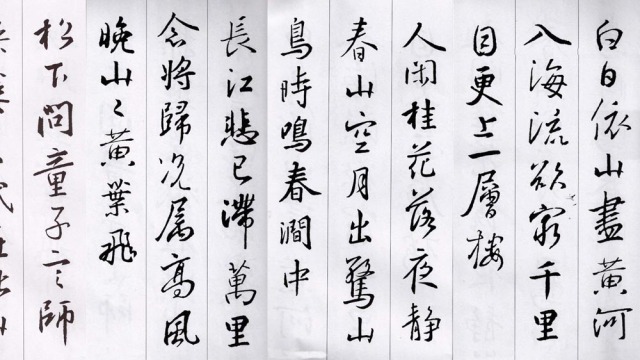 白日依山盡黃河
入海流欲窮千里
目更上一層樓
人閑桂花落夜静
春山空月出驚山
鳥時鳴春澗中
長江悲已滯萬里
念將歸况屬高風
晚山〻黃葉飛
松下問童子言師